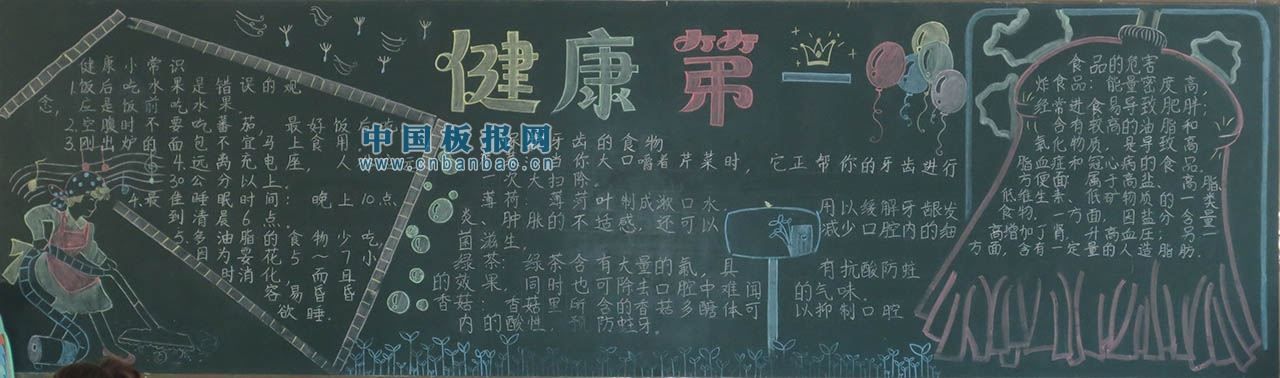 健康小常识
1.饭后吃水果是错误的观
念，应是饭前吃水果
2.空腹时不要吃番茄，最好饭
3.刚出炉的面包不宜马上食用
30公分以上
4.最佳睡眠时间：晚上10点
到清晨6点
5.多油脂的食物少吃，
因为消化要5～7小
时，而且易昏昏
欲睡。
健康第一
中国板报网
www.cnbanbao.cn
牙齿的食物
你大口嚼着芹菜时，它正帮你的牙齿进行
一次大扫除
薄荷：薄荷叶制成漱口水，用以缓解牙龈发
炎、肿胀的不适感，还可以减少口腔内的细
菌滋生。
绿茶：绿茶含有大量的氟，具有抗酸防蛀
的效果，同时也可除去口腔中难闻的气味。
香菇：香菇里所含的香菇多醣体可以抑制口腔
内的酸性，预防蛀牙。
食品的危害
炸食品：能量密度高，
经常进食导致肥胖；
含有较高的油脂和
氧化物质，是导致高
血脂和冠心病的食品。
方便面：属高盐、高脂、
低维生素、低矿物质的一类
食物。一方面，因盐分含量
高增加了肾
升高血压；另一
方面，含有一定量的人造脂肪